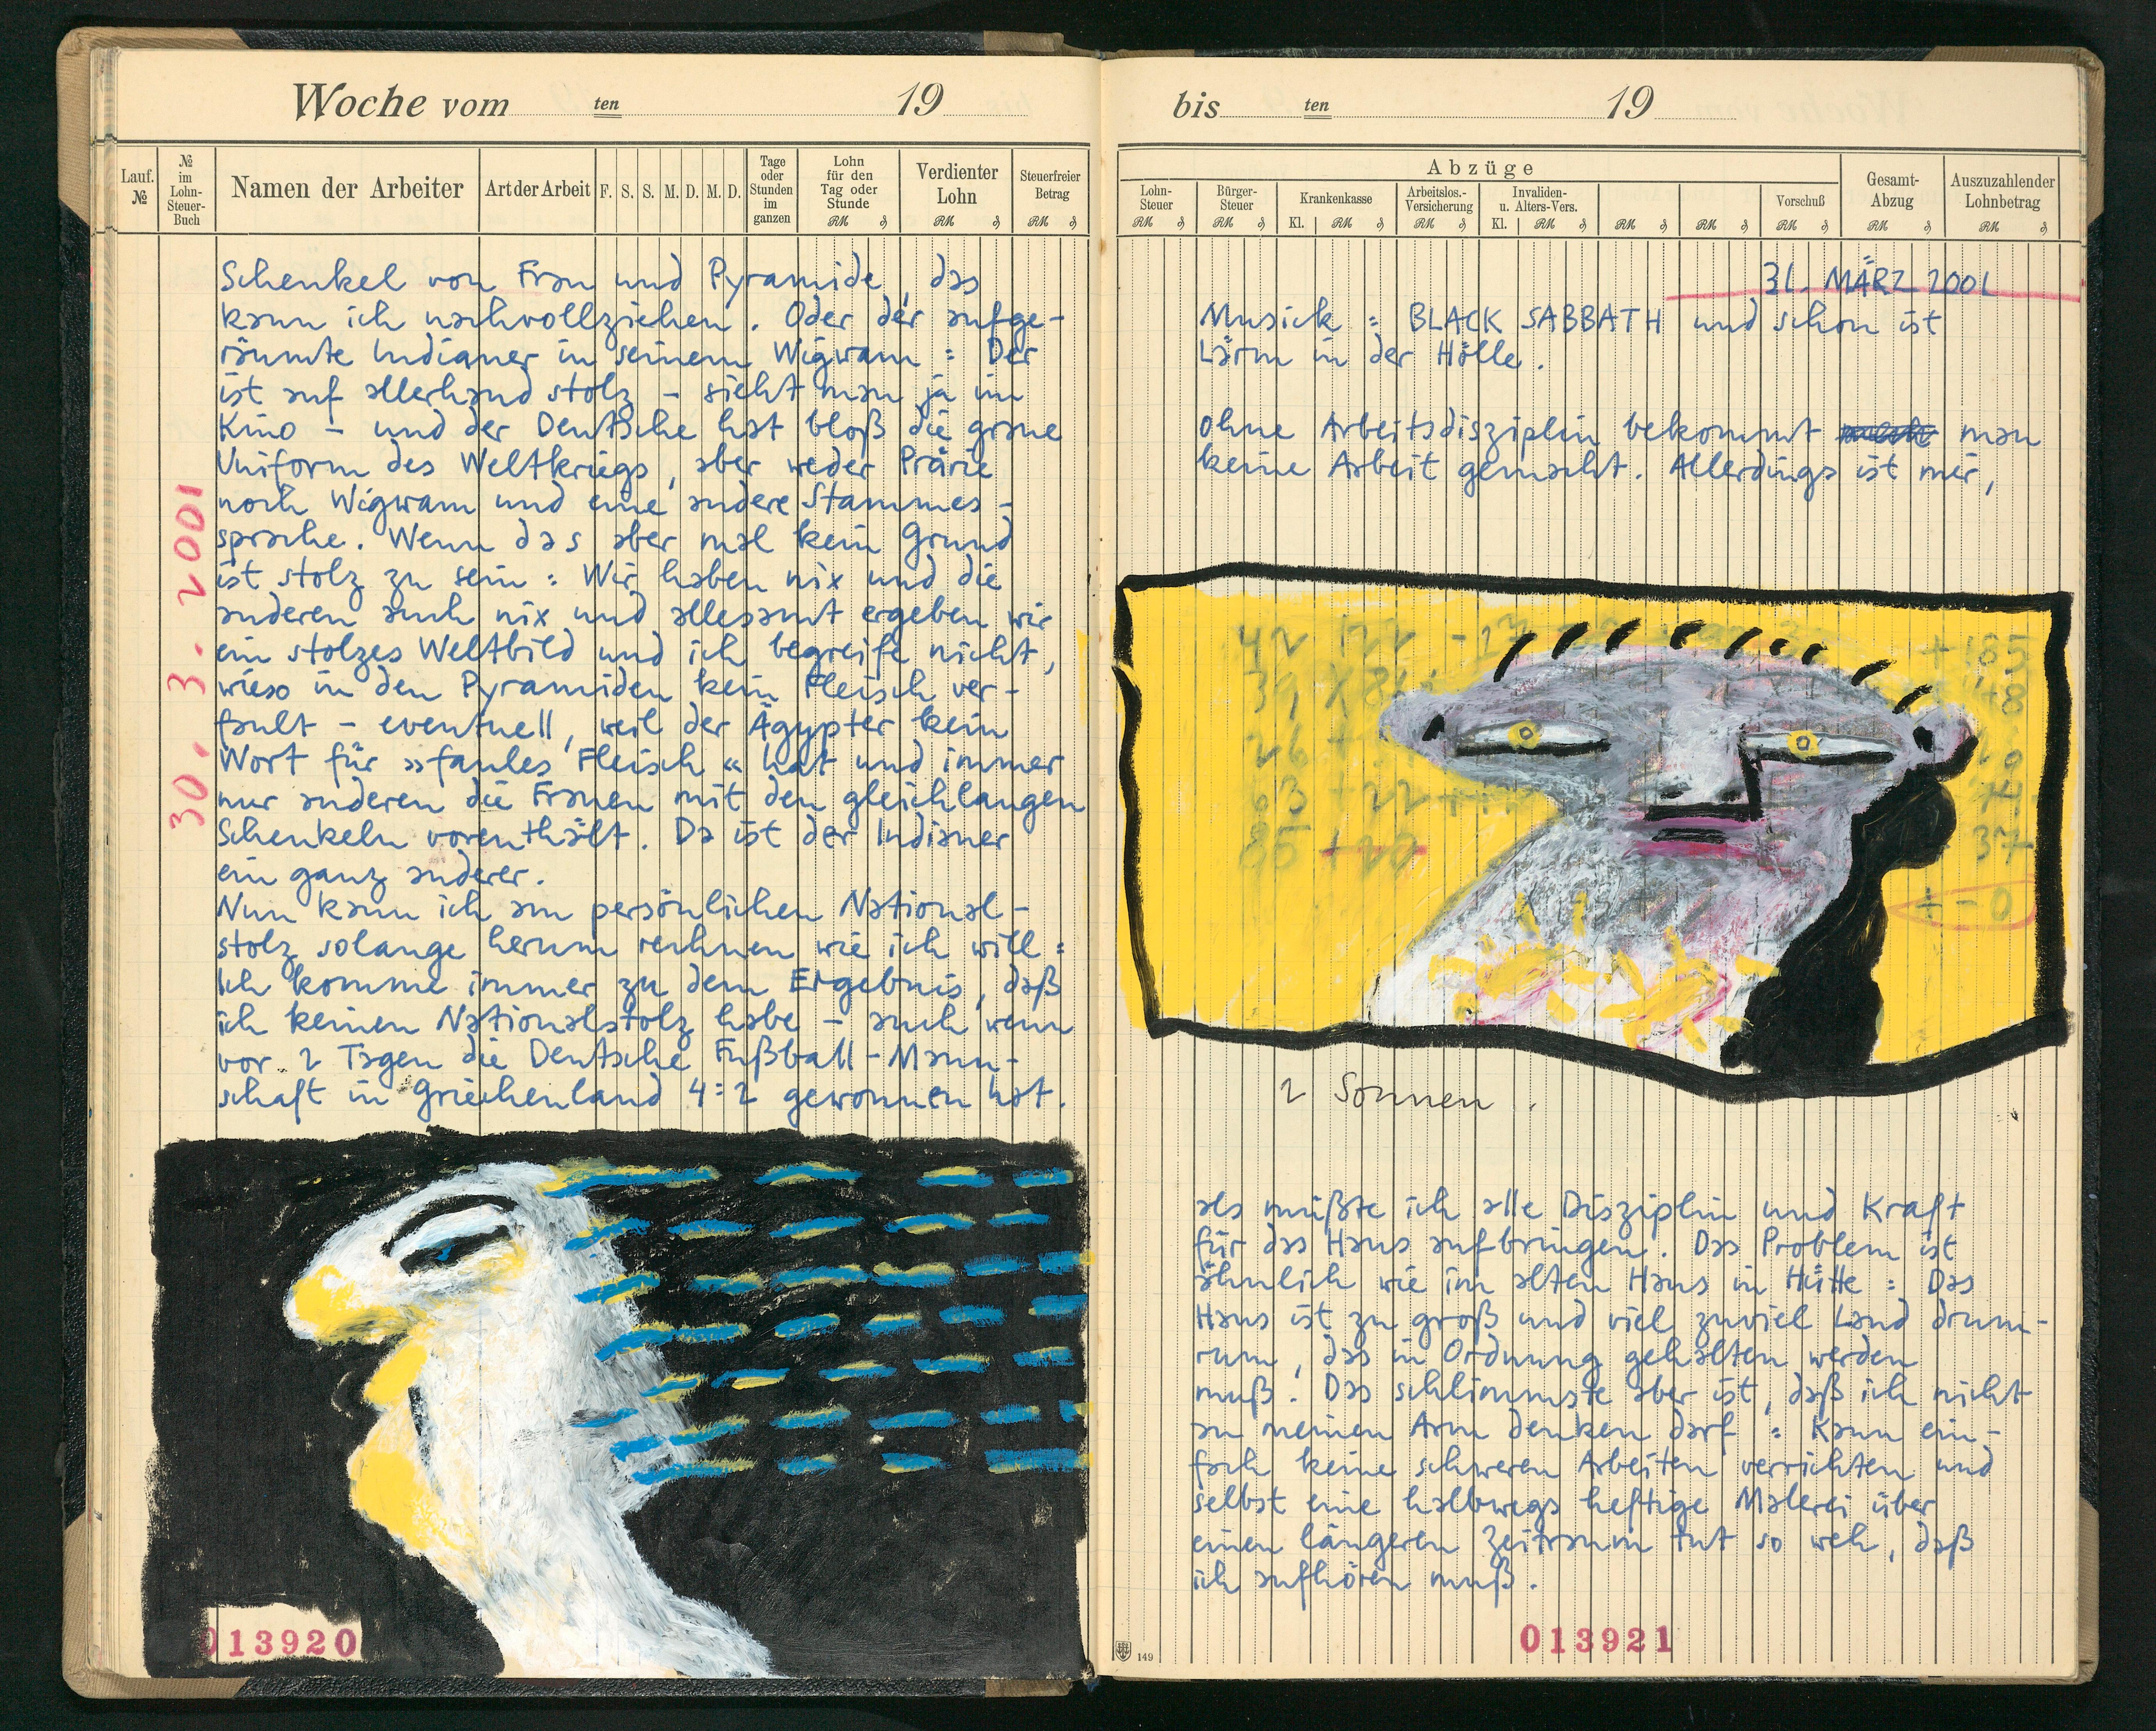 Woche vom ten 19
Lauf. №
№ im Lohn-Steuer-Buch
Namen der Arbeiter
Art der Arbeit
F. S. S. M. D. M. D.
Tage oder Stunden im ganzen
Lohn für den Tag oder Stunde
RM ₰
Verdienter Lohn
RM ₰
Steuerfreier Betrag
RM ₰
30. 3. 2001
Schenkel von Frau und Pyramide, das
kann ich nachvollziehen. Oder der aufge-
räumte Indianer in seinem Wigwam: Der
ist auf allerhand stolz – sieht man ja im
Kino – und der Deutsche hat bloß die graue
Uniform des Weltkriegs, aber weder Prärie
noch Wigwam und eine andere Stammes-
sprache. Wenn das aber mal kein Grund
ist stolz zu sein: Wir haben nix und die
anderen auch nix und allesamt ergeben wir
ein stolzes Weltbild und ich begreife nicht,
wieso in den Pyramiden kein Fleisch ver-
fault – eventuell, weil der Ägypter kein
Wort für »faules Fleisch« hat und immer
nur anderen die Frauen mit den gleichlangen
Schenkeln vorenthält. Da ist der Indianer
ein ganz anderer.
Nun kann ich am persönlichen National-
stolz solange herum rechnen wie ich will:
Ich komme immer zu dem Ergebnis, daß
ich keinen Nationalstolz habe – auch wenn
vor 2 Tagen die Deutsche Fußball-Mann-
schaft in Griechenland 4:2 gewonnen hat.
013920
bis ten 19
Abzüge
Lohn-Steuer
RM ₰
Bürger-Steuer
RM ₰
Krankenkasse
Kl. RM ₰
Arbeitslos.-Versicherung
RM ₰
Invaliden- u. Alters-Vers.
Kl. RM ₰
RM ₰
RM ₰
Vorschuß
RM ₰
Gesamt-Abzug
RM ₰
Auszuzahlender Lohnbetrag
RM ₰
31. MÄRZ 2001
Musick: BLACK SABBATH und schon ist
Lärm in der Hölle.
ohne Arbeitsdisziplin bekommt man
keine Arbeit gemacht. Allerdings ist mir,
42 122 -17 +185
39 x 8 48
26 +
63 +22 +
85 +20 37
+-0
2 Sonnen.
als müßte ich alle Disziplin und Kraft
für das Haus aufbringen. Das Problem ist
ähnlich wie im alten Haus in Hütte: Das
Haus ist zu groß und viel zuviel Land drum-
rum, das in Ordnung gehalten werden
muß. Das schlimmste aber ist, daß ich nicht
an meinen Arm denken darf: Kann ein-
fach keine schweren Arbeiten verrichten und
selbst eine halbwegs heftige Malerei über
einen längeren Zeitraum tut so weh, daß
ich aufhören muß.
149
013921